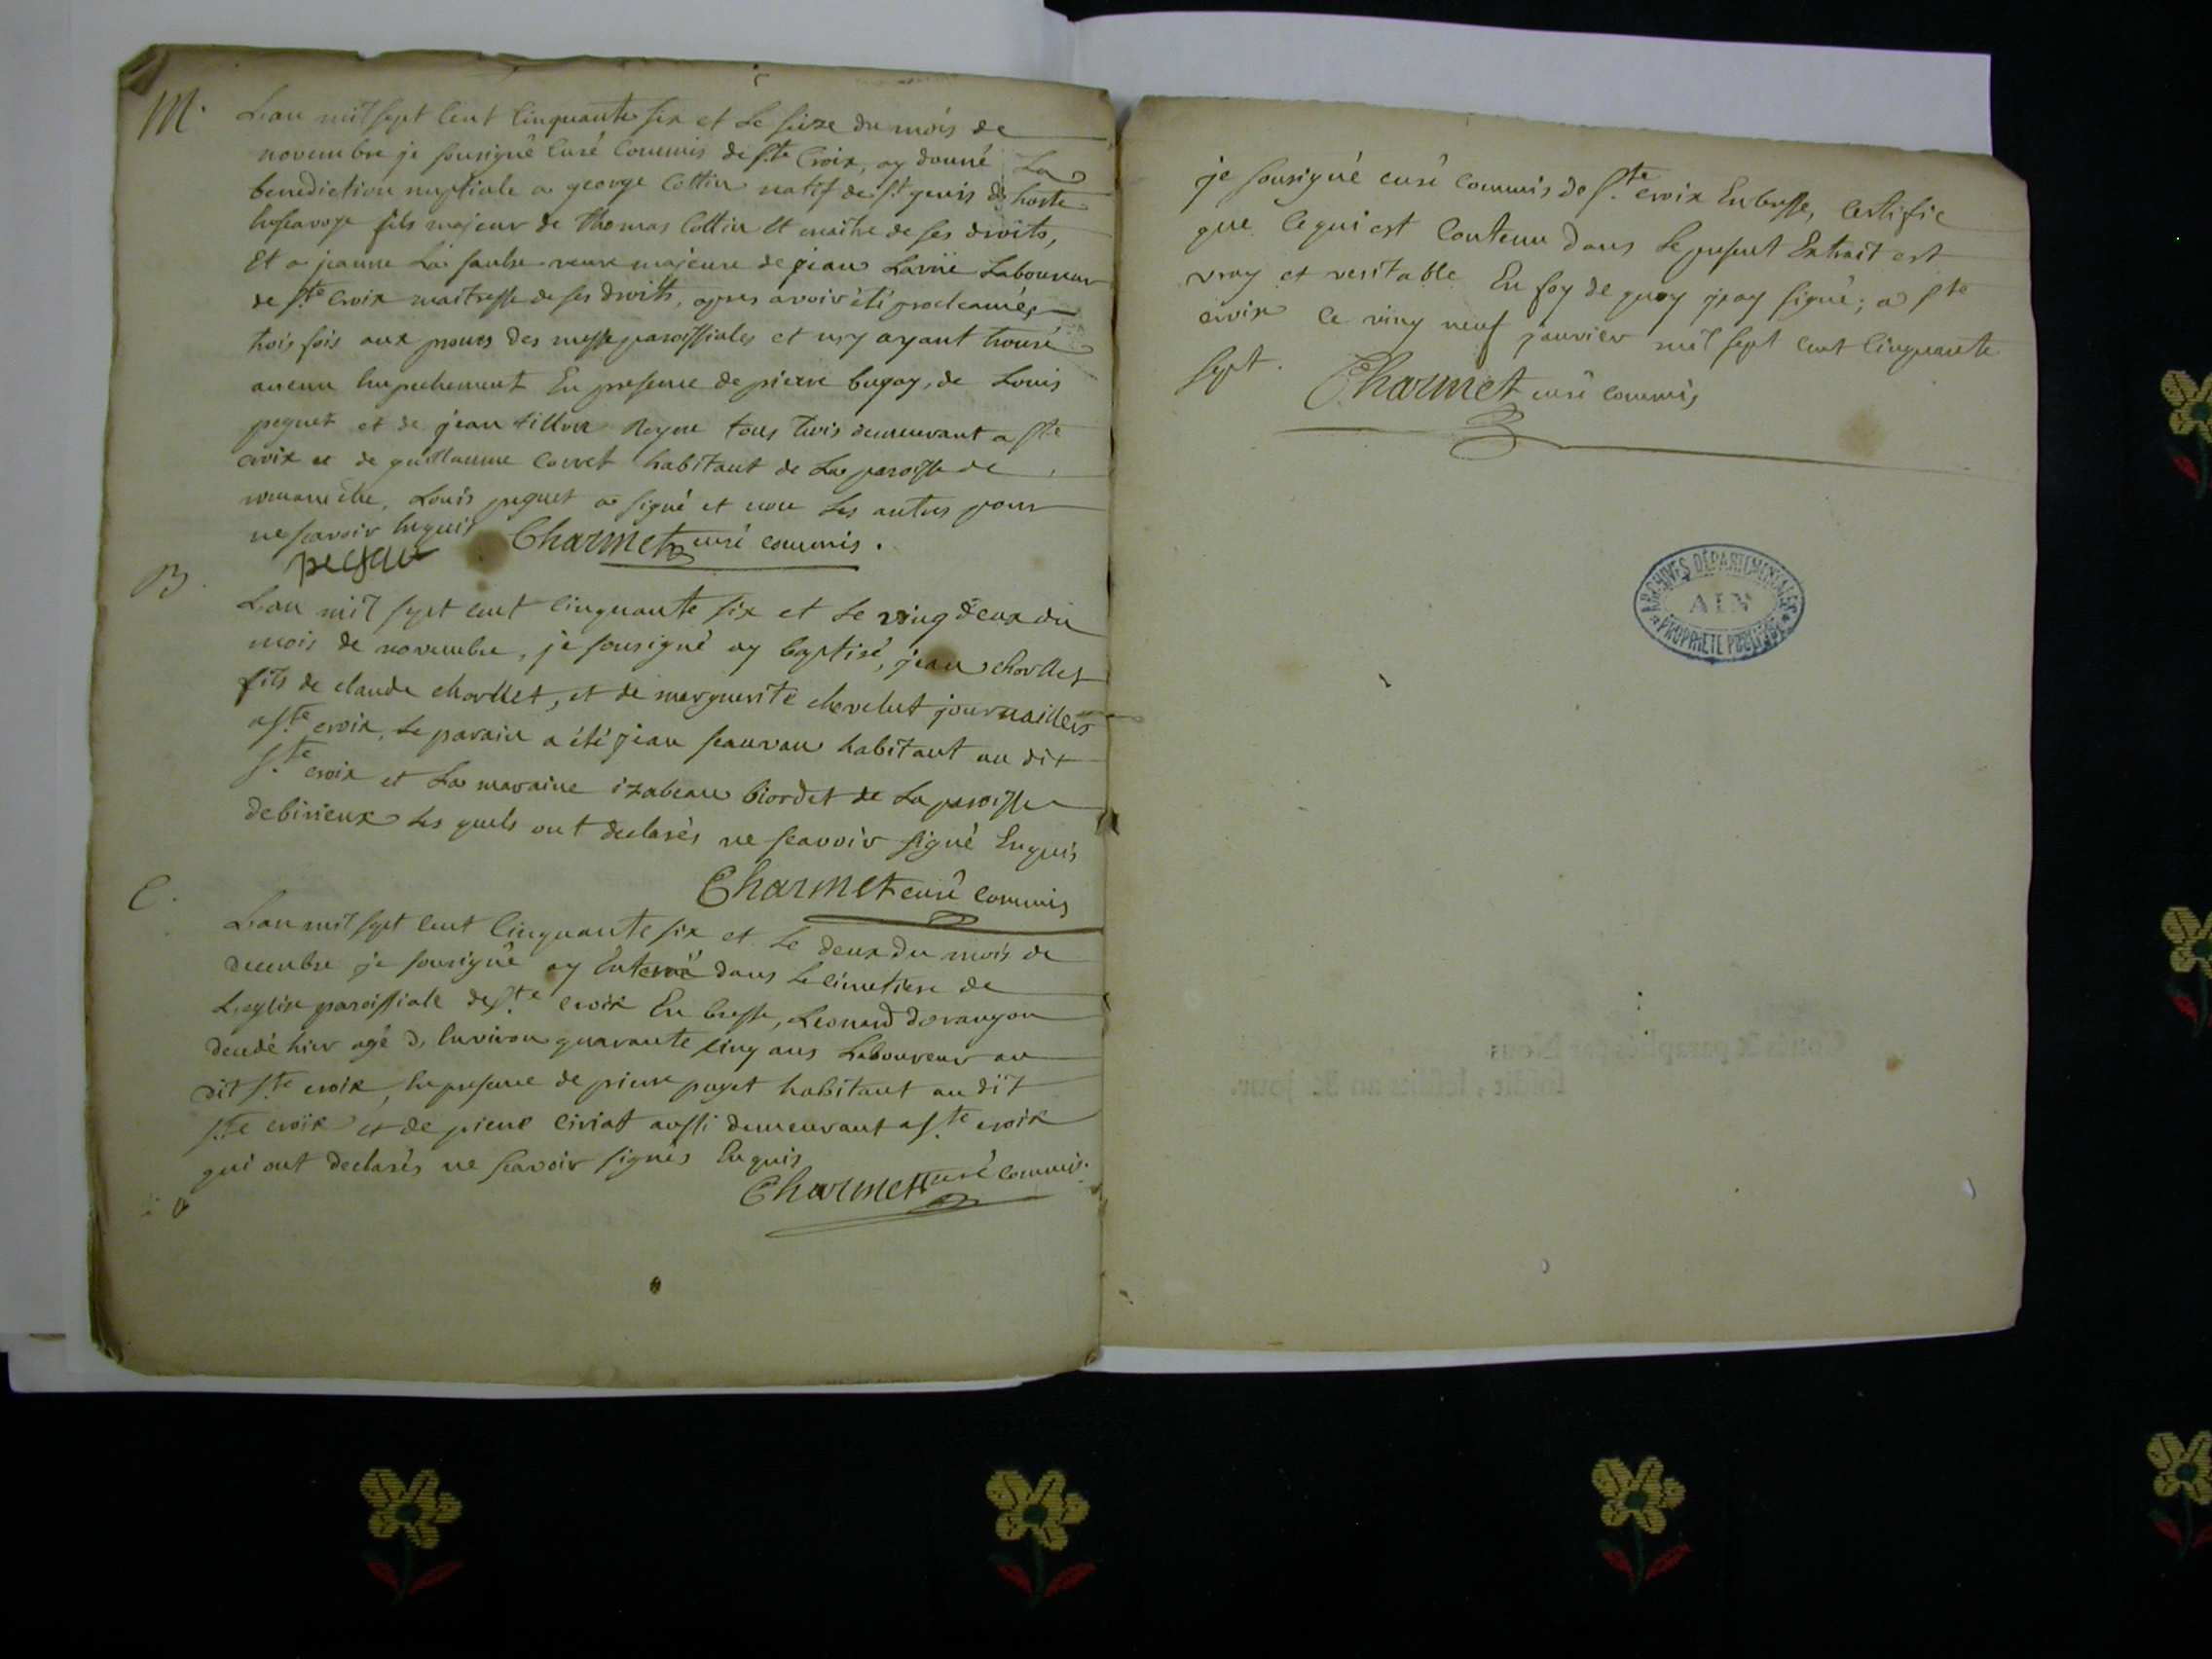 M.
L'an mil sept cent cinquante six et le seize du mois de
novembre je sousigné curé commis de Ste Croix, ay donné La
benediction nuptiale a george Cottin natif de St genis
en savoye fils majeur de Thomas Cottin et maitre de ses droits,
Et a jeanne La veuve majeure de jean Laboureur
de Ste Croix maitresse de ses droits, apres avoir été proclamés
trois fois aux prones des messe paroissiales et n'y ayant trouvé
aucun Empechement En presence de pierre bugay, de Louis
peguet et de jean tillon tous trois demeurant a Ste
croix et de guillaume Corret habitant de La paroisse de
romaneche, Louis peguet a signé et non Les autres pour
ne scavoir Enquis Charmet curé commis.
peguet
B.
L'an mil sept cent cinquante six et le ving deux du
mois de novembre, je sousigné ay baptisé, jean chorllet
fils de claude chorllet, et de marguerite chevelut journailiers
a Ste croix, Le parain a été jean habitant au dit
Ste croix et La maraine izabeau biordet de La paroisse
de birieux Les quels ont declarés ne scavoir signé Enquis
Charmet curé commis
E.
L'an mil sept cent cinquante six et le deux du mois de
decembre je sousigné ay Enterré dans Le cimetiere de
L'eglise paroissiale de Ste croix En bresse, Leonard
decedé hier agé d'Environ quarante cinq ans Laboureur au
dit Ste croix, En presence de pierre payet habitant au dit
Ste croix et de pierre civiat aussi demeurant a Ste croix
qui ont declarés ne scavoir signés Enquis
Charmet curé commis.
je sousigné curé commis de Ste croix En bresse, certifie
que ce qui est contenu dans Le present Extrait est
vray et veritable En foy de quoy j'ay signé; a Ste
croix ce ving neuf janvier mil sept cent cinquante
sept. Charmet curé commis
ARCHIVES DÉPARTEMENTALES
AIN
PROPRIÉTÉ PUBLIQUE